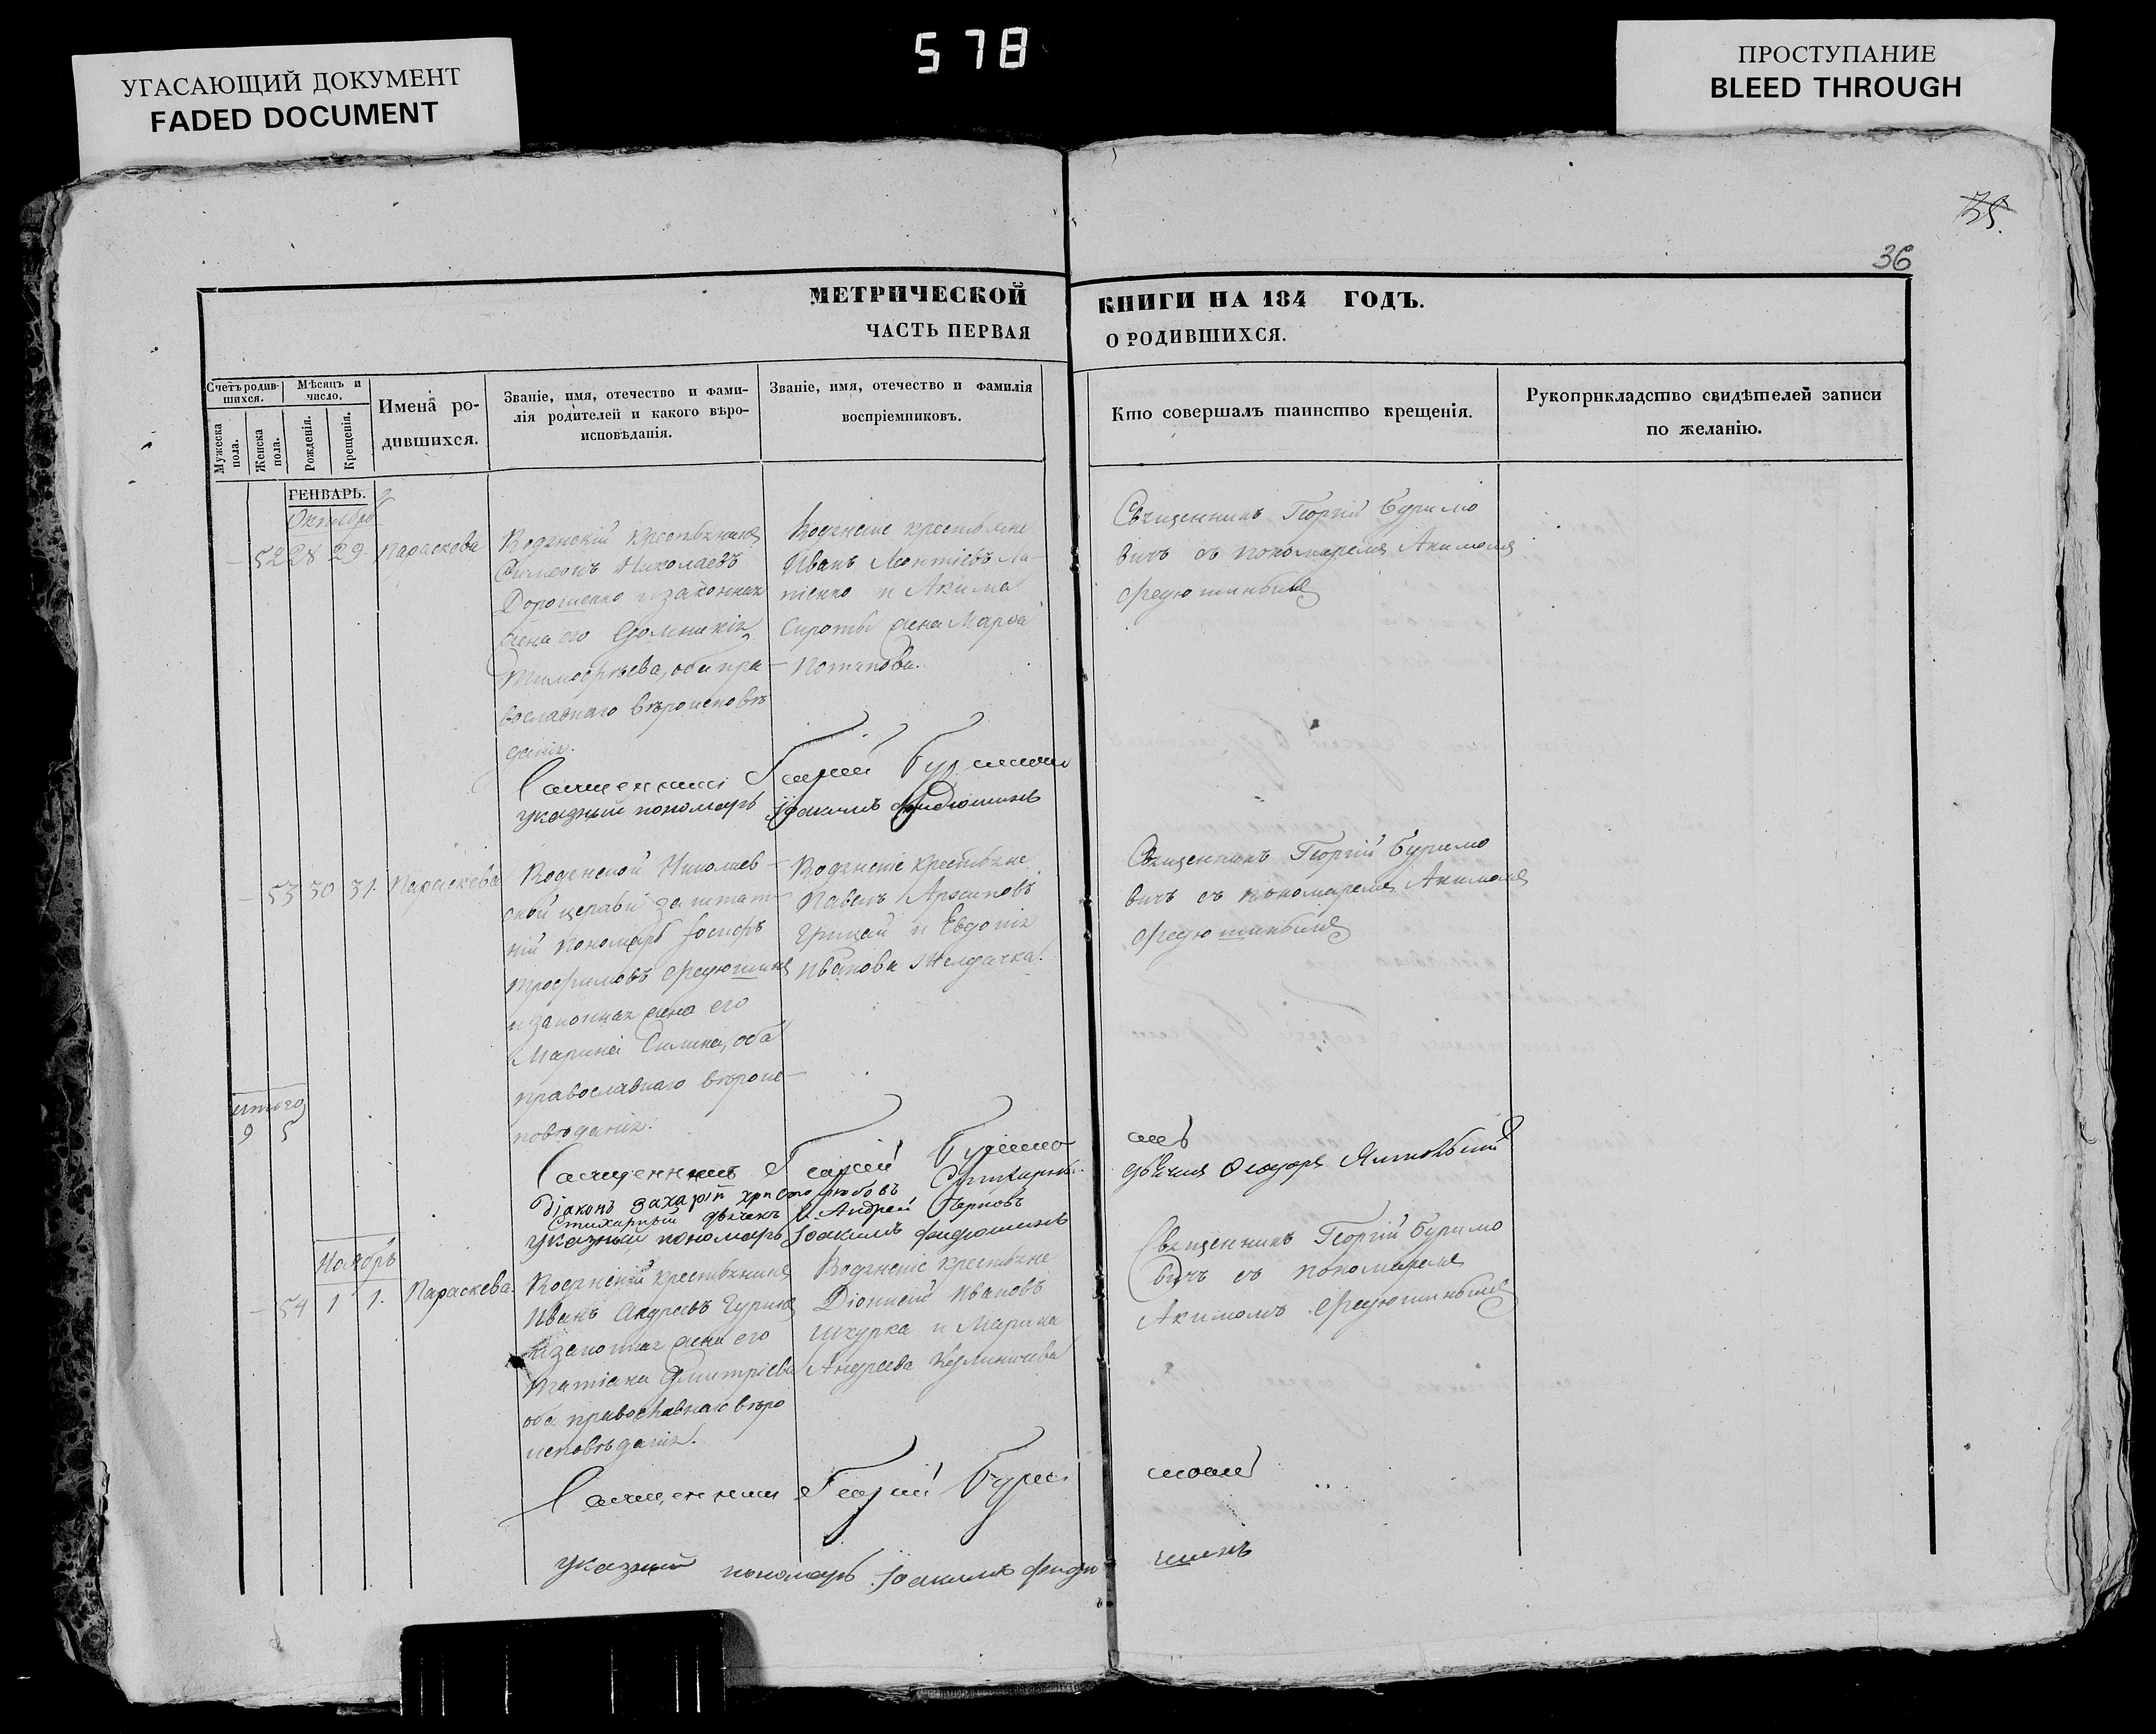 УГАСАЮЩИЙ ДОКУМЕНТ
FADED DOCUMENT
578
ПРОСТУПАНИЕ
BLEED THROUGH
35.
36
МЕТРИЧЕСКОЙ КНИГИ НА 184 ГОДЪ.
ЧАСТЬ ПЕРВАЯ О РОДИВШИХСЯ.
Счетъ родив-
шихся.
Мужеска пола.
Женска пола.
Мѣсяцъ и число.
Рожденія.
Крещенія.
Имена ро-
дившихся.
Званіе, имя, отечество и фами-
лія родителей и какого вѣро-
исповѣданія.
Званіе, имя, отечество и фамилія
воспріемниковъ.
Кто совершалъ таинство крещенія.
Рукоприкладство свидѣтелей записи
по желанію.
ГЕНВАРЬ.
Октябрь
- 52 28 29. Параскева
крестьянинъ
Симеонъ Николаевъ
Дорошенко и законная
жена его Домникія
Тимофѣева, оба пра-
вославнаго вѣроисповѣ
данія.
крестьяне
Иванъ Леонтіевъ Ла-
пенко и Акима
Сироты жена Марѳа
Потапова.
Священникъ Георгій Буримо
вичъ съ пономаремъ Акимомъ
Федюшинымъ
Священникъ Георгій
указный пономарь Іоакимъ Федюшинъ
- 53 30 31. Параскева
Николаев-
ской церкви заштат-
ній пономарь Іосифъ
Трофимовъ Федюшинъ
и законная жена его
Марина Силина, оба
православнаго вѣроис-
повѣданія.
крестьяне
Павелъ Архиповъ
Грицай и Евдокія
Иванова
Священникъ Георгій Буримо
вичъ съ пономаремъ Акимомъ
Федюшинымъ
итого
9 5
Священникъ Георгій
Діаконъ Захарій Христолюбовъ
Стихирный дьячекъ Андрей Черновъ
указный пономарь Іоакимъ Федюшинъ
Ноябрь
- 54 1 1. Параскева.
крестьянинъ
Иванъ Андреевъ Гуринъ
и законная жена его
Татіана Дмитріева
оба православнаго вѣро
исповѣданія.
крестьяне
Діонисій Ивановъ
Шкурка и Марина
Андреева
Священникъ Георгій Буримо
вичъ съ пономаремъ
Акимомъ Федюшинымъ
Священникъ Георгій
указный пономарь Іоакимъ Федю шинъ